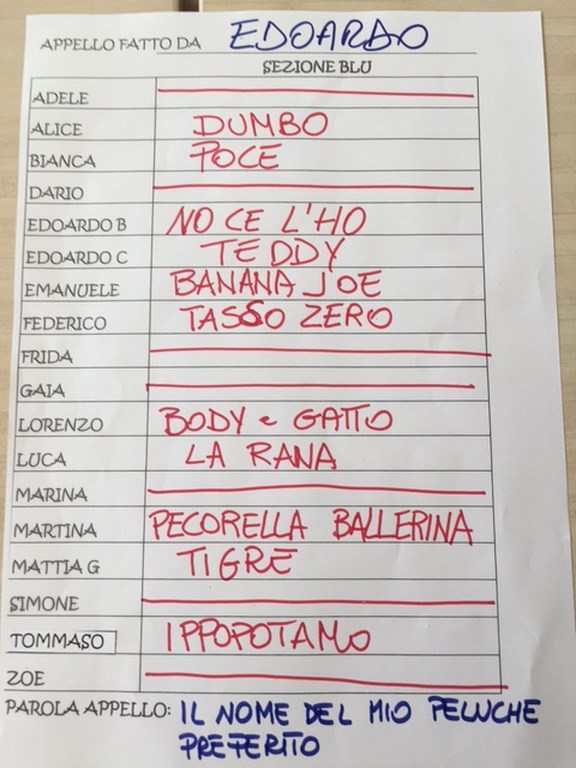 APPELLO FATTO DA EDOARDO
SEZIONE BLU
ADELE
ALICE DUMBO
BIANCA POCE
DARIO
EDOARDO B NO CE L'HO
EDOARDO C TEDDY
EMANUELE BANANA JOE
FEDERICO TASSO ZERO
FRIDA
GAIA
LORENZO BODY e GATTO
LUCA LA RANA
MARINA
MARTINA PECORELLA BALLERINA
MATTIA G TIGRE
SIMONE
TOMMASO IPPOPOTAMO
ZOE
PAROLA APPELLO: IL NOME DEL MIO PELUCHE
PREFERITO